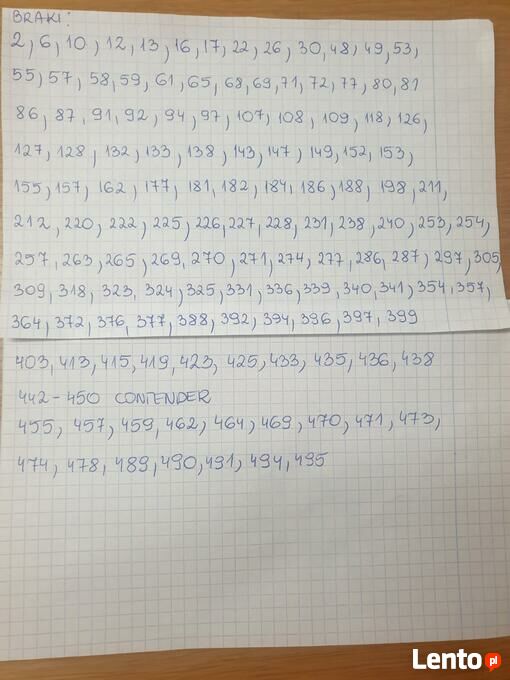 BRAKI:
2, 6, 10, 12, 13, 16, 17, 22, 26, 30, 48, 49, 53,
55, 57, 58, 59, 61, 65, 68, 69, 71, 72, 77, 80, 81
86, 87, 91, 92, 94, 97, 107, 108, 109, 118, 126,
127, 128, 132, 133, 138, 143, 147, 149, 152, 153,
155, 157, 162, 177, 181, 182, 184, 186, 188, 198, 211,
212, 220, 222, 225, 226, 227, 228, 231, 238, 240, 253, 254,
257, 263, 265, 269, 270, 271, 274, 277, 286, 287, 297, 305,
309, 318, 323, 324, 325, 331, 336, 339, 340, 341, 354, 357,
364, 372, 376, 377, 388, 392, 394, 396, 397, 399
403, 413, 415, 419, 423, 425, 433, 435, 436, 438
442-450 CONTENDER
455, 457, 459, 462, 464, 469, 470, 471, 473,
474, 478, 489, 490, 491, 494, 495
Lento pl